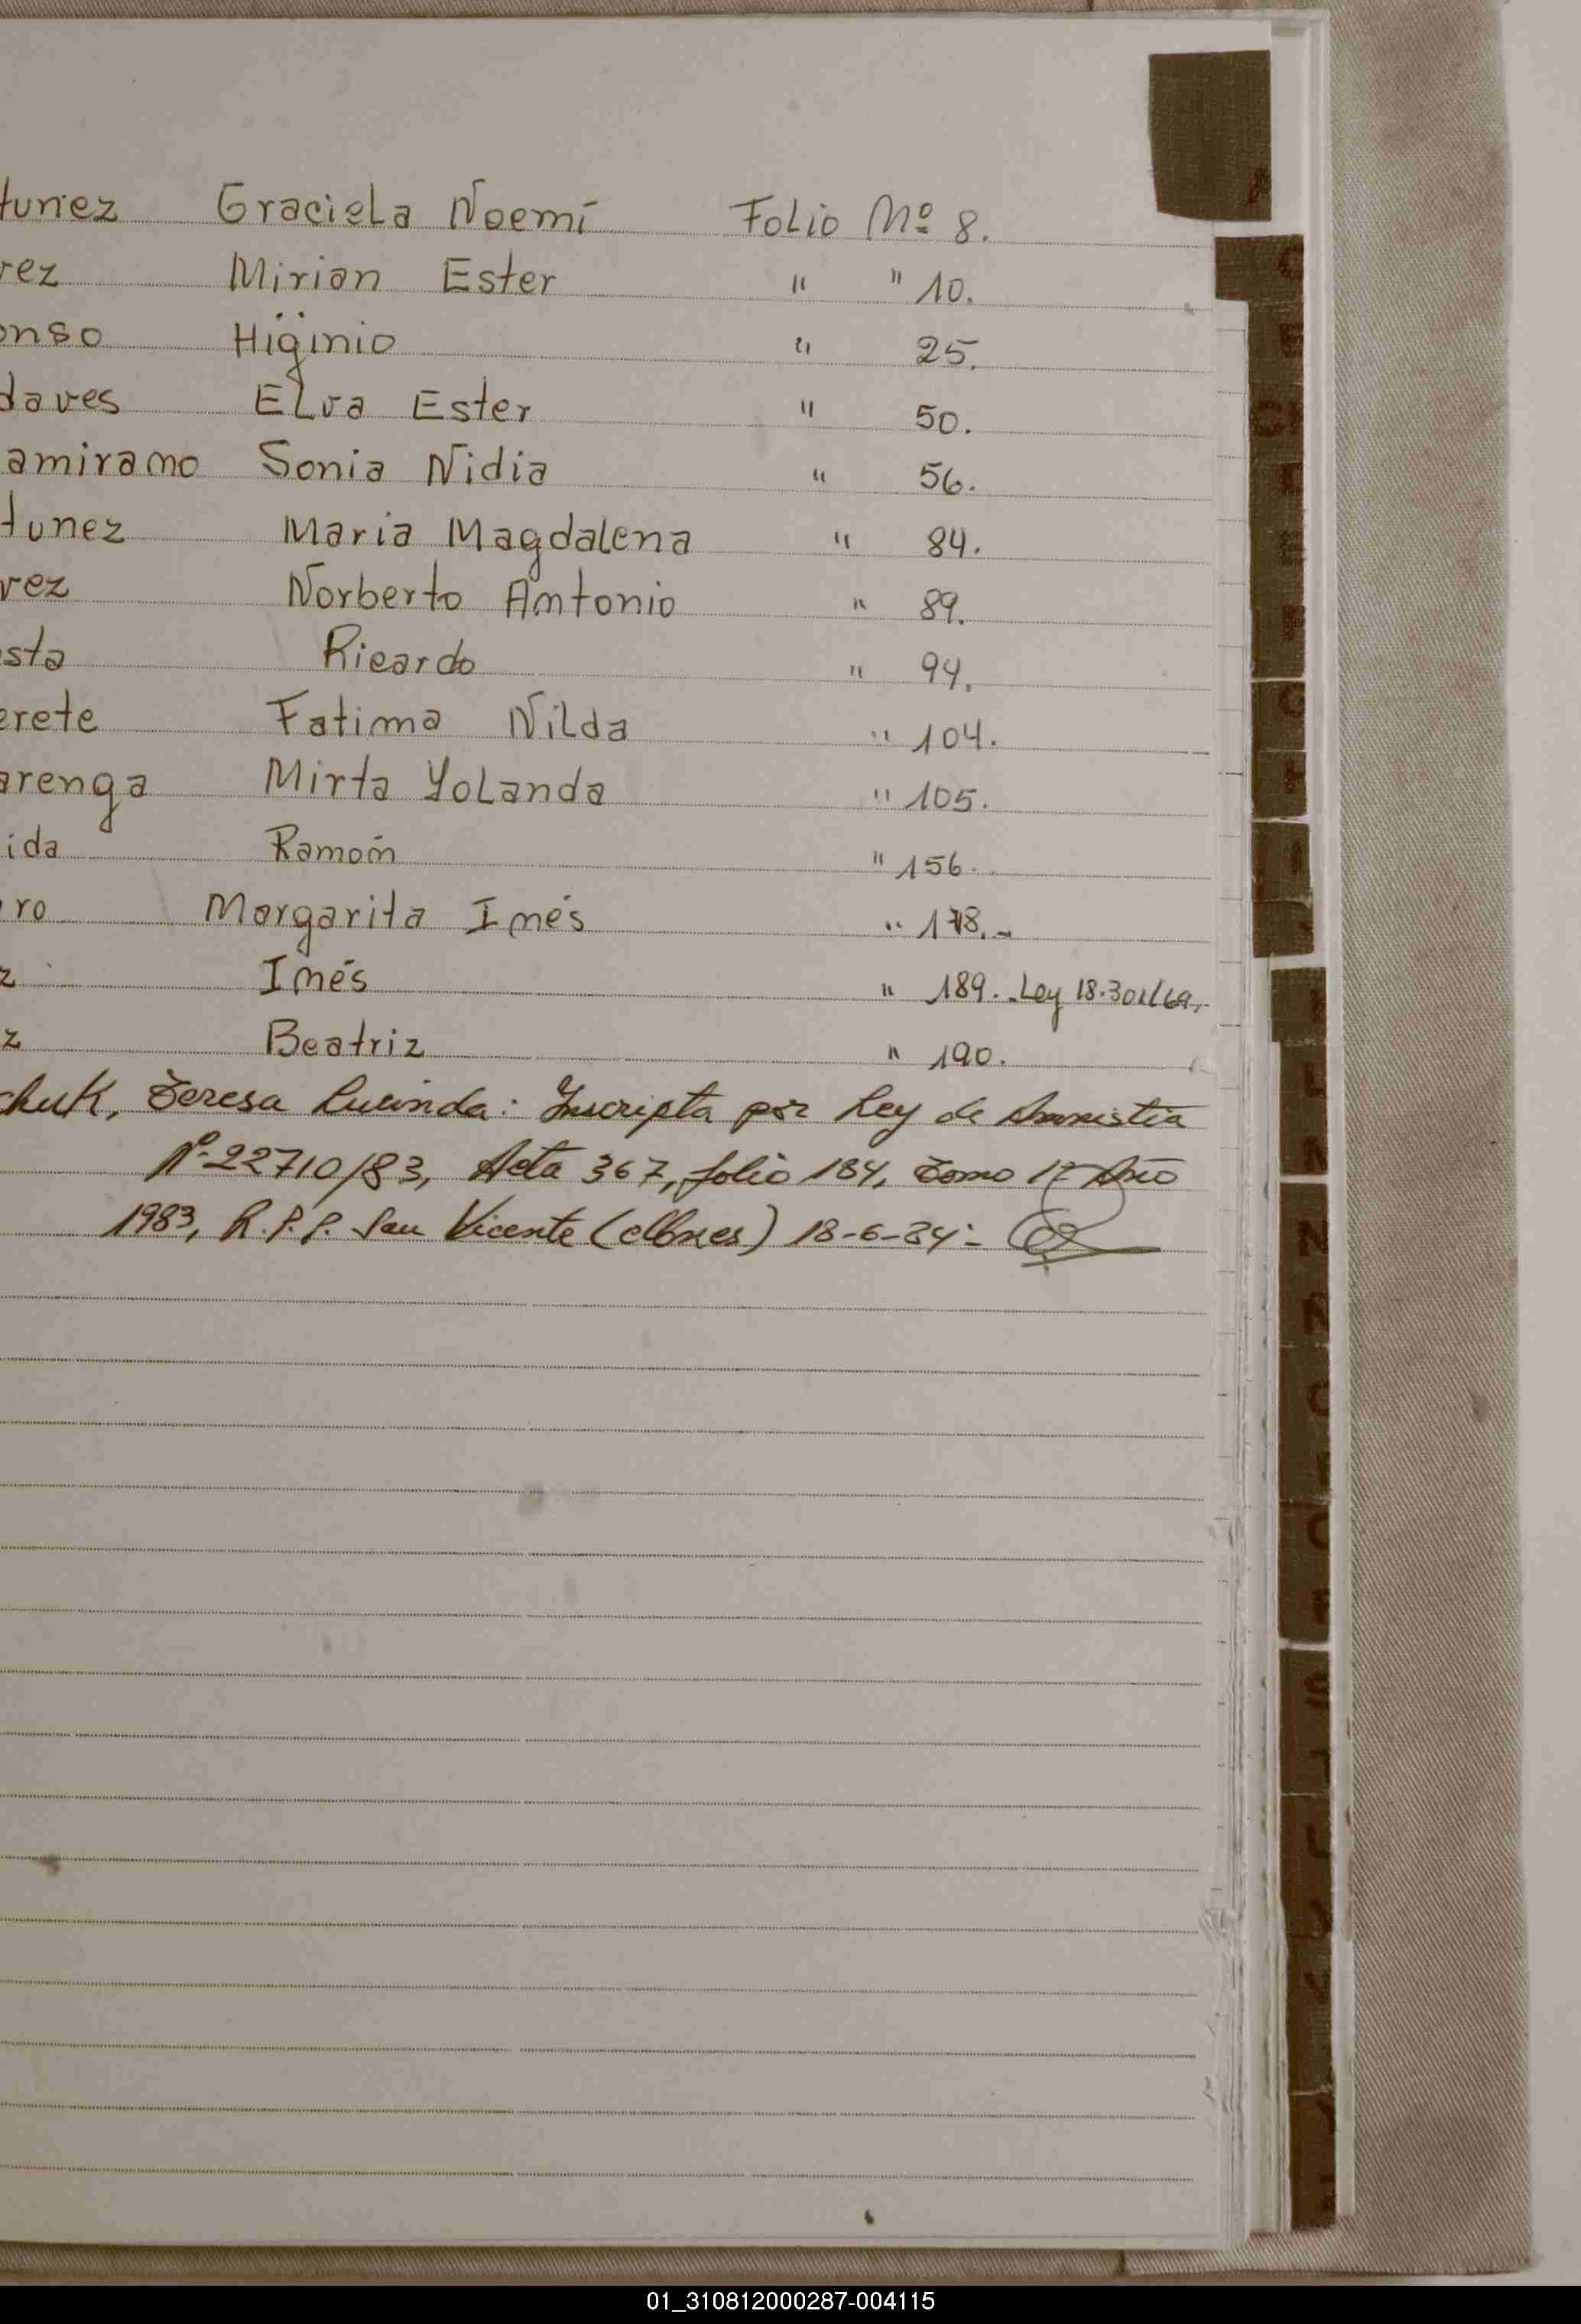 tunez Graciela Noemí Folio Nº 8.
rez Mirian Ester " " 10.
onso Higinio " 25.
daves Elva Ester " 50.
amirano Sonia Nidia " 56.
tunez Maria Magdalena " 84.
rez Norberto Antonio " 89.
sta Ricardo " 94.
erete Fatima Nilda " 104.
arenga Mirta Yolanda " 105.
ida Ramón " 156.
ro Margarita Inés " 178.-
z Inés " 189.-Ley 18.301/69.-
z Beatriz " 190.
chuk, Teresa Lucinda: Inscripta por Ley de Amnistia
Nº 22710/83, Acta 367, folio 184, Tomo 1º Año
1983, R.P.P. San Vicente (Mnes) 18-6-84-
01_310812000287-004115